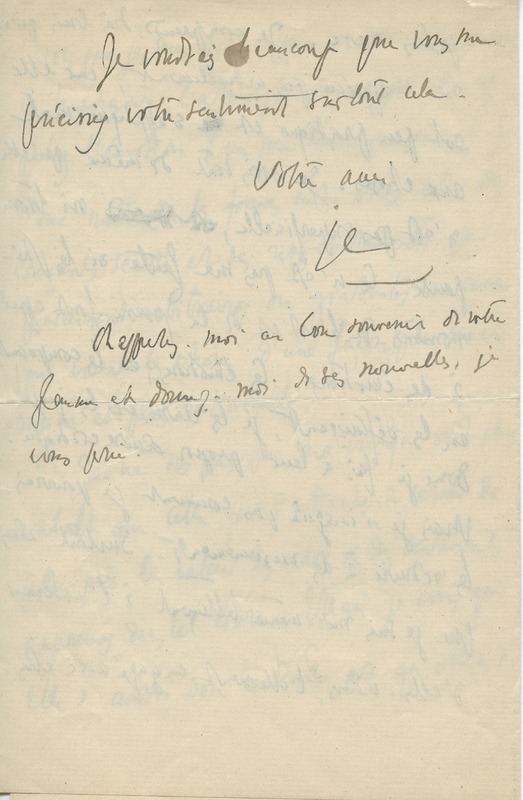 Je voudrais beaucoup que vous me
précisiez votre sentiment sur tout cela.
Votre ami
Rappelez-moi au bon souvenir de votre
femme et donnez-moi de ses nouvelles, je
vous prie.